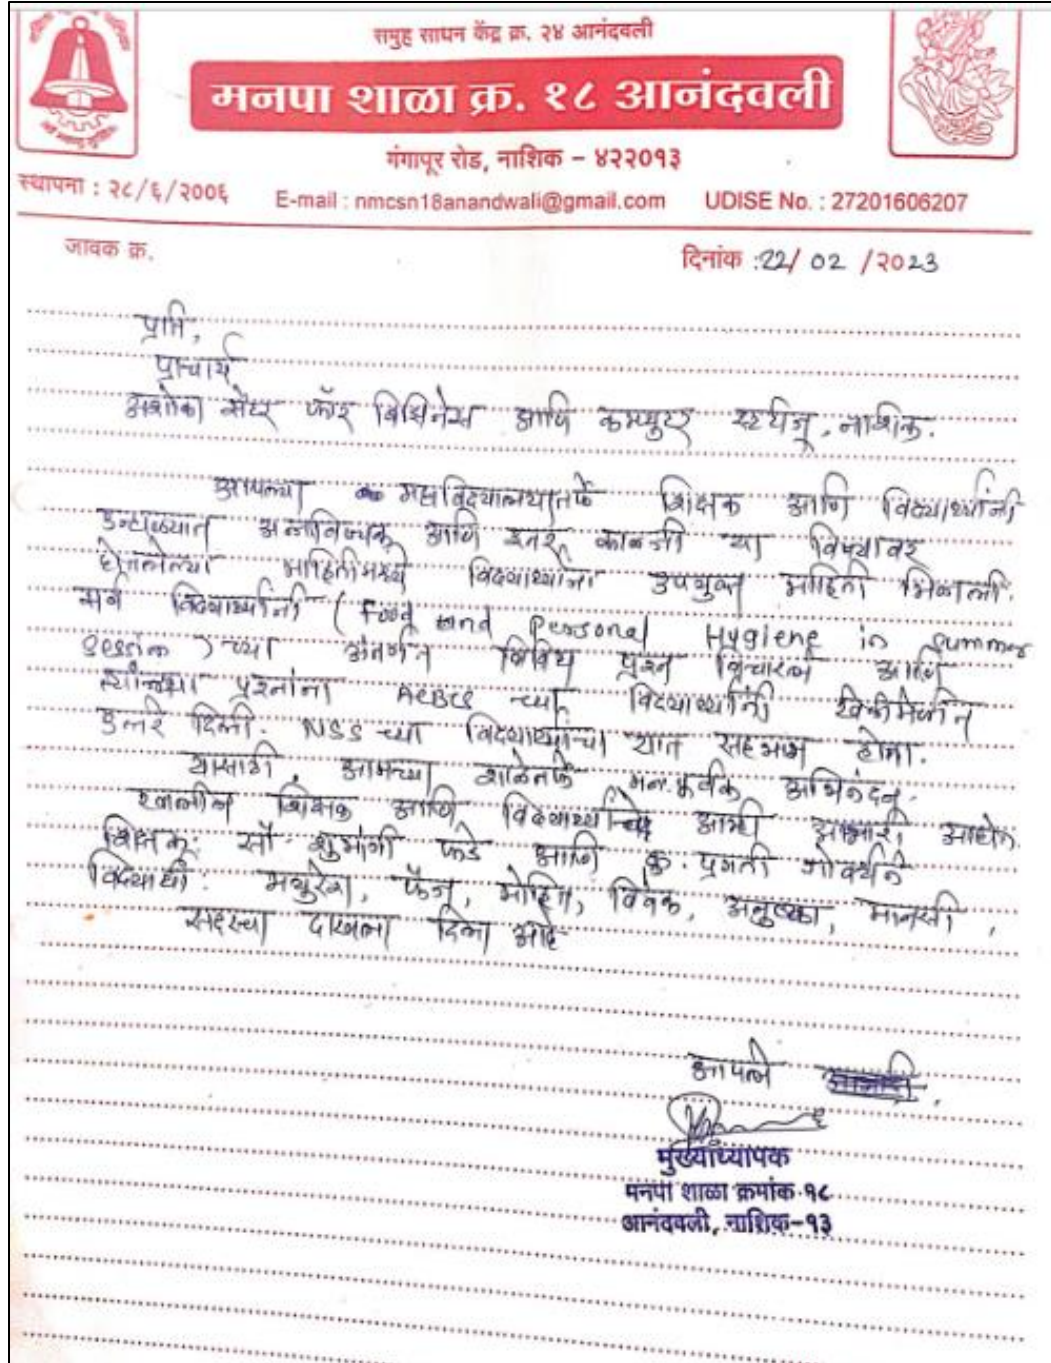 समुह साधन केंद्र क्र. २४ आनंदवली
मनपा शाळा क्र. १८ आनंदवली
गंगापूर रोड, नाशिक – ४२२०१३
स्थापना : २८/६/२००६
E-mail : nmcsn18anandwali@gmail.com UDISE No. : 27201606207
जावक क्र. दिनांक :22/ 02 /२०23
प्रति,
प्राचार्य
अशोका सेंटर फॉर बिझिनेस आणि कम्प्युटर स्टडीज्, नाशिक.
आपल्या महाविद्यालयातर्फे शिक्षक आणि विद्यार्थ्यांनी
उन्हाळ्यात आणि काळजी या विषयावर
घेतलेल्या माहितीमध्ये विद्यार्थ्यांना उपयुक्त माहिती मिळाली.
सर्व विद्यार्थ्यांनी ( Food and Personal Hygiene in Summer
Session ) च्या अंतर्गत विविध प्रश्न विचारले आणि
त्यांच्या प्रश्नांना ACBCS च्या विद्यार्थ्यांनी
उत्तरे दिली. NSS च्या विद्यार्थ्यांचा यात सहभाग होता.
यासाठी आमच्या शाळेतर्फे मनःपूर्वक अभिनंदन.
खालील शिक्षक आणि विद्यार्थ्यांचे आम्ही आभारी आहोत.
शिक्षक: सौ. शुभांगी फडे आणि कु. प्रगती गोवर्धने
विद्यार्थी: मयुरेश, फैज, मोहित, विवेक, अनुष्का, मानसी,
दाखला दिला आहे
आपले
मुख्याध्यापक
मनपा शाळा क्रमांक-१८
आनंदवली, नाशिक-१३